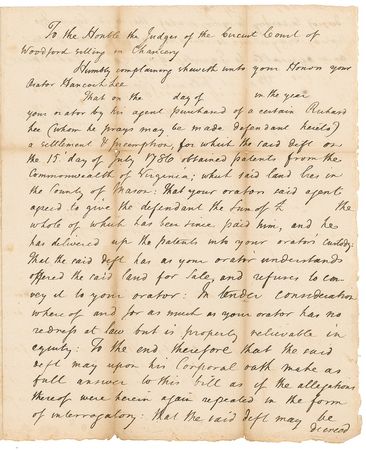 To the Honble the Judges of the Circuit Court of
Woodford sitting in Chancery
Humbly complaining sheweth unto your Honors your
Orator Hancock Lee
That on the day of in the year
your orator by his agent purchased of a certain Richard
Lee (whom he prays may be made defendant hereto)
a settlement & preemption, for which the said deft on
the 15 day of July 1780 obtained patents from the
Commonwealth of Virginia; which said land lies in
the County of Mason: That your orators said agent
agreed to give the defendant the sum of £ the
whole of which has been since paid him, and he
has delivered up the patents into your orators custody:
That the said deft has as your orator understands
offered the said land for Sale, and refuses to con-
vey it to your orator: In tender consideration
whereof and for as much as your orator has no
redress at law but is properly relievable in
equity: To the end therefore that the said
deft may upon his Corporal oath make as
full answer to this bill as if the allegations
thereof were herein again repeated in the form
of interrogatory: that the said deft may be
decreed